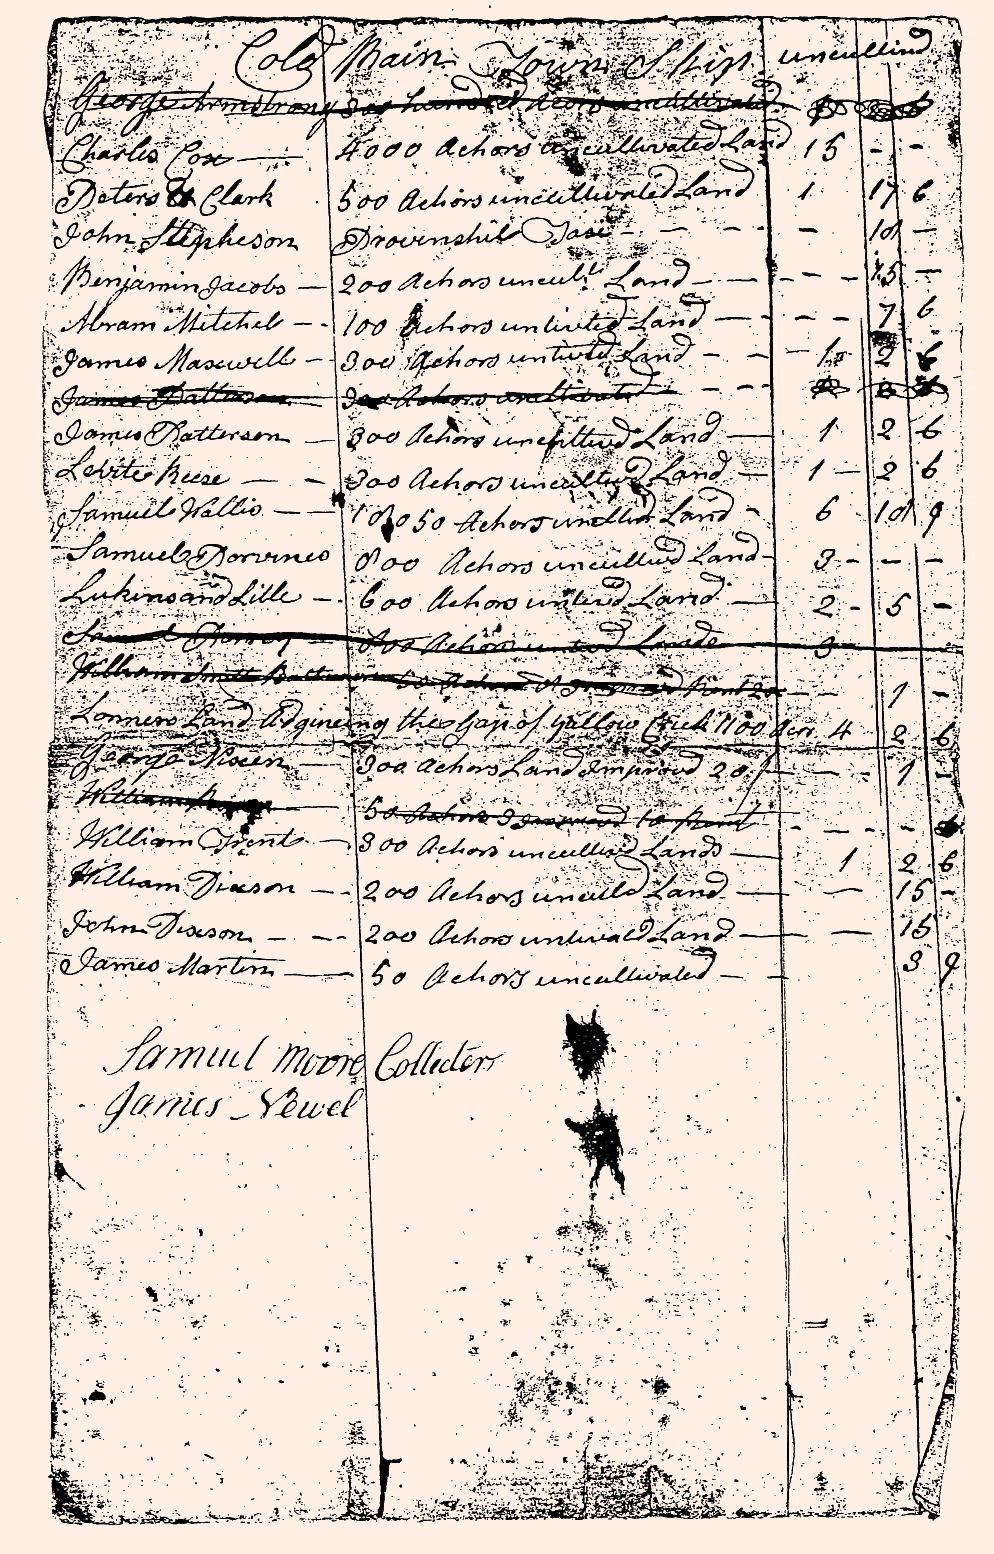 Cold Main Town Ship uncultiud
George Armstrong 300 hundred Acors uncultivated 6
Charles Cox 4000 Achors uncultivated Land 15 - -
Peters & Clark 500 Achors uncultiuated Land 1 17 6
John Stepheson Provenshil Taxe - - - - 18 -
Benjamin Jacobs - 200 Achors uncult Land - - - - 15 -
Abram Mitchel - - 100 Achors untivted Land - - - - 7 6
James Maxwell - 300 Achors untiued Land - - - 1 2 6
James Patterson 300 Achors uncultivated - - -
James Patterson - 300 Achors uncultiued Land - 1 2 6
Levite Reese - - 300 Achors uncultiud Land - 1 - 2 6
Samuel Wallis - - 18050 Achors uncltiu Land - 6 18 9
Samuel Porvines 800 Achors uncultiud Land - 3 - - -
Lukins and Lille - 600 Achors untiued Land - 2 - 5 -
800 Achors Lands 3
William Smith 50 Achors Rent 20 - - 1 -
Land Adgineing the Gap of yallow Crick 1100 Acrs 4 2 6
George Nixen - 300 Achors Land Improud 20/ - - - 1 -
William 50 Achors to Rent - - - -
William Trent - 300 Achors uncultiued Lands - 1 2 6
William Dixson - - 200 Achors uncultd Land - - 15 -
John Dixson - - - 200 Achors untiuated Land - - 15
James Martin - 50 Achors uncultivated - - 3 9
Samuel Moore Collectors
James Newel